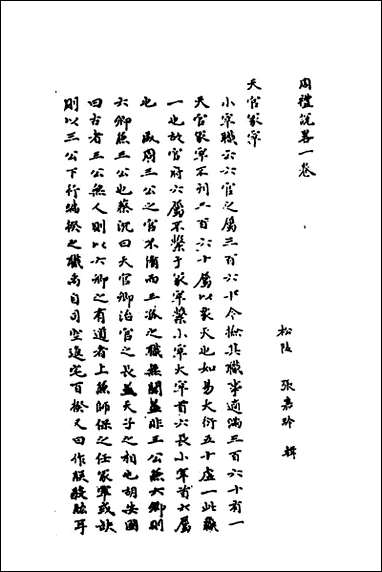 周禮說畧一卷
松陵 張嘉玲 輯
天官冢宰
小宰職六六官之屬三百六十今㨿其職事適滿三百六十有一
天官冢宰不列三百六十屬以象天也如易大衍五十虛一此藏
一也故官府六屬不繫于冢宰繫小宰大宰首六長小宰首六屬
也 成周三公之官不備而三派之職無闕蓋非三公無六卿則
六卿無三公也蔡沉曰天官卿治官之長蓋天子之相也胡安國
曰古者三公無人則以六卿之有道者上無師保之任冢宰或缺
則以三公下行端揆之職禹自司空進宅百揆又曰作朕股肱耳